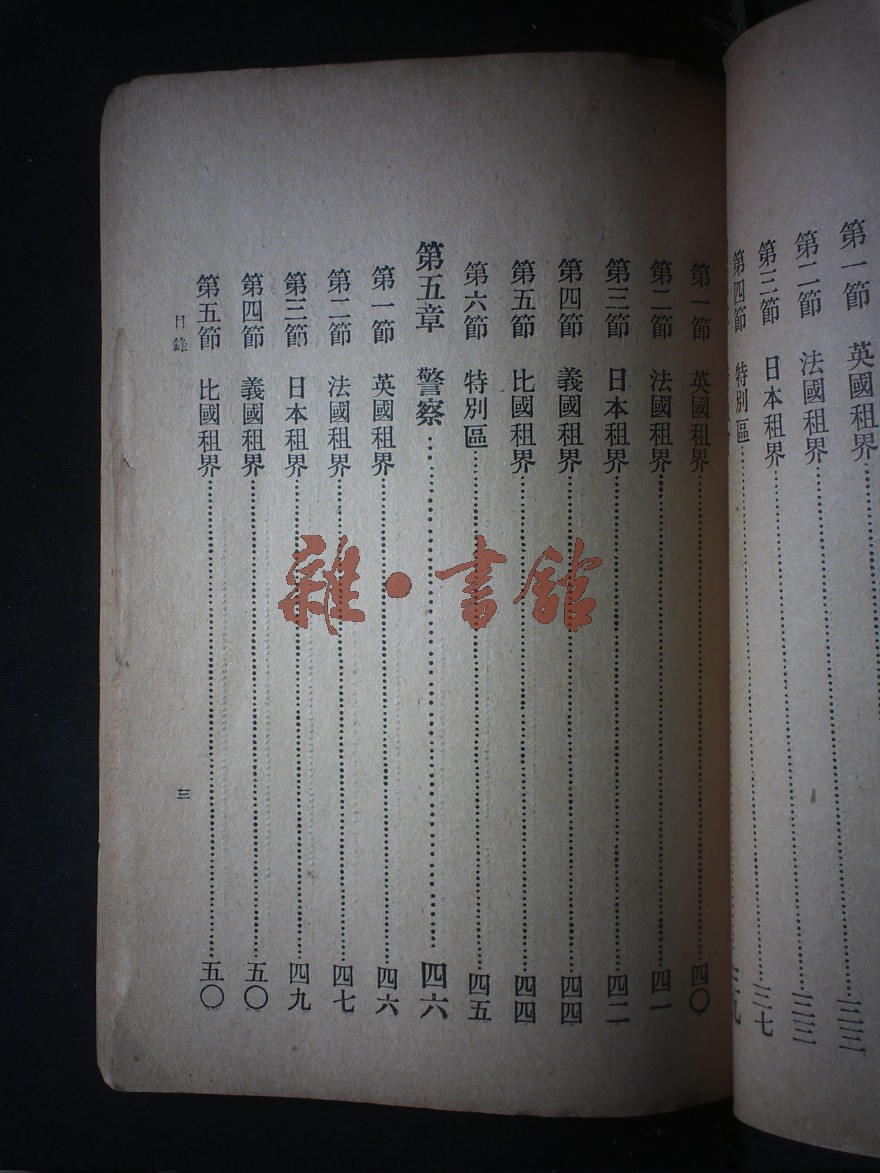 第一節 英國租界 三三
第二節 法國租界 三三
第三節 日本租界 三七
第四節 特別區 三九
第一節 英國租界 四〇
第二節 法國租界 四一
第三節 日本租界 四二
第四節 義國租界 四四
第五節 比國租界 四四
第六節 特別區 四五
第五章 警察 四六
第一節 英國租界 四六
第二節 法國租界 四七
第三節 日本租界 四九
第四節 義國租界 五〇
第五節 比國租界 五〇
目錄 三
雜·書館